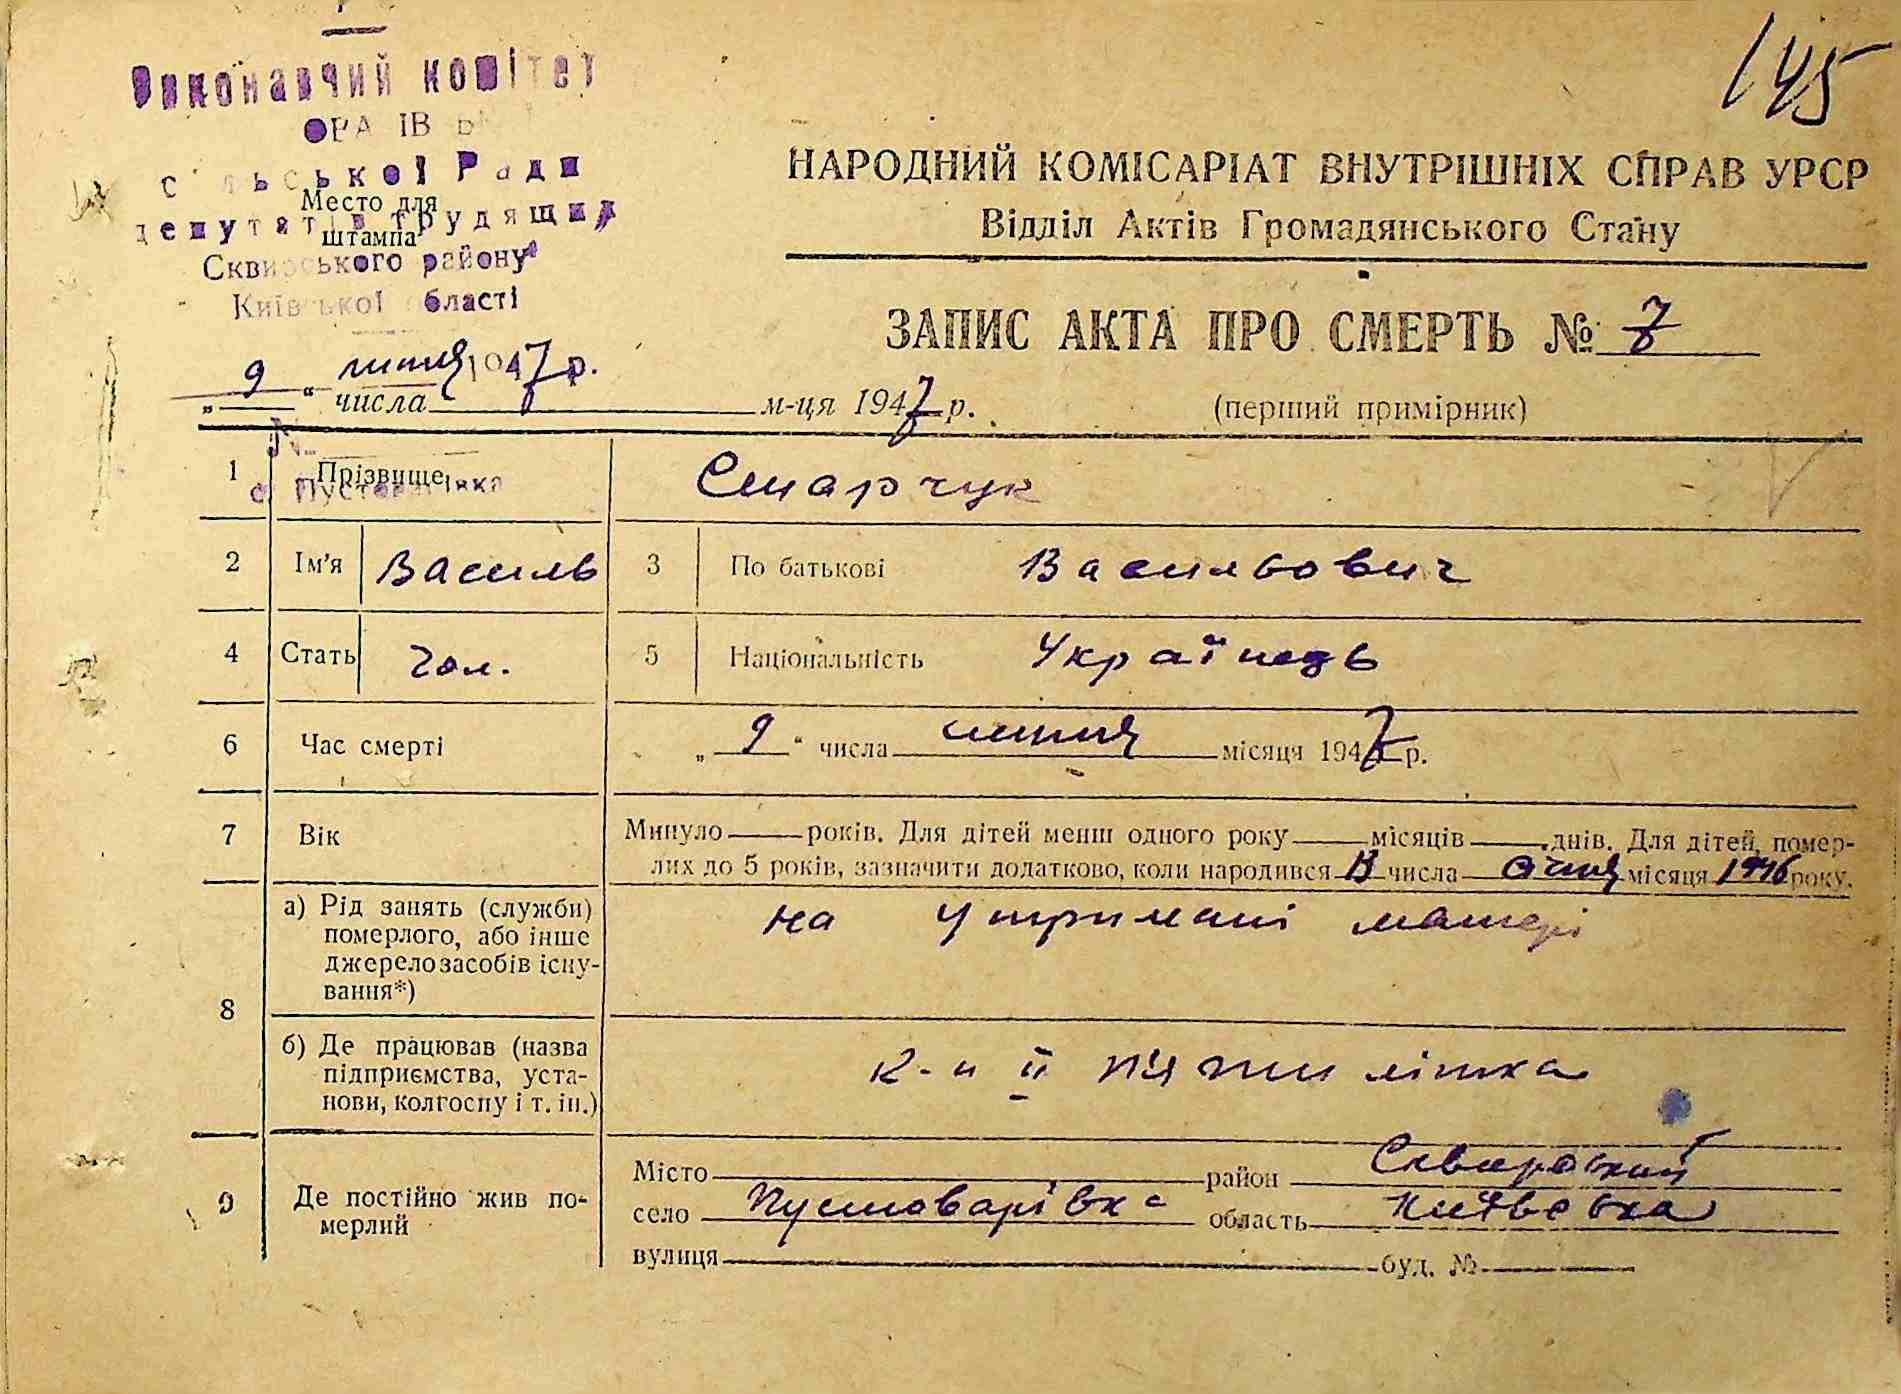 145
Виконавчий комітет
сільської Ради
депутатів трудящих
Сквирського району
Київської області
Место для
штампа
НАРОДНИЙ КОМІСАРІАТ ВНУТРІШНІХ СПРАВ УРСР
Відділ Актів Громадянського Стану
ЗАПИС АКТА ПРО СМЕРТЬ № 7
9 липня 1947 р.
„ “ числа м-ця 1947 р.
(перший примірник)
1 Прізвище Старчук
с. Пустоварівка
2 Ім'я Василь 3 По батькові Васильович
4 Стать чол. 5 Національність Українець
6 Час смерті „ 9 “ числа липня місяця 1947 р.
7 Вік Минуло років. Для дітей менш одного року місяців днів. Для дітей, помер-
лих до 5 років, зазначити додатково, коли народився 13 числа січня місяця 1946 року.
8 а) Рід занять (служби) померлого, або інше джерело засобів існу-вання*) на утримані матері
б) Де працював (назва підприємства, уста-нови, колгоспу і т. ін.) к-п ІІ п'ятилітка
9 Де постійно жив по-мерлий
Місто район Сквирський
село Пустоварівка область Київська
вулиця буд. №